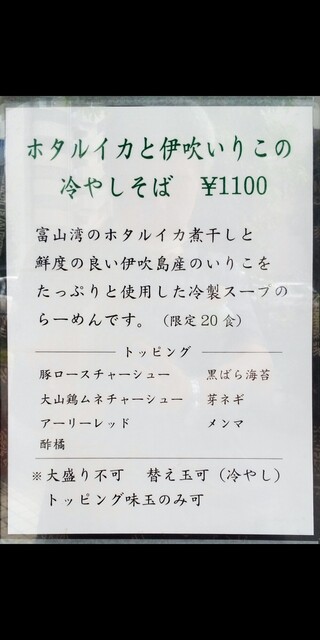 ホタルイカと伊吹いりこの
冷やしそば ¥1100
富山湾のホタルイカ煮干しと
鮮度の良い伊吹島産のいりこを
たっぷりと使用した冷製スープの
らーめんです。（限定20食）
トッピング
豚ロースチャーシュー 黒ばら海苔
大山鶏ムネチャーシュー 芽ネギ
アーリーレッド メンマ
酢橘
※大盛り不可 替え玉可（冷やし）
トッピング味玉のみ可